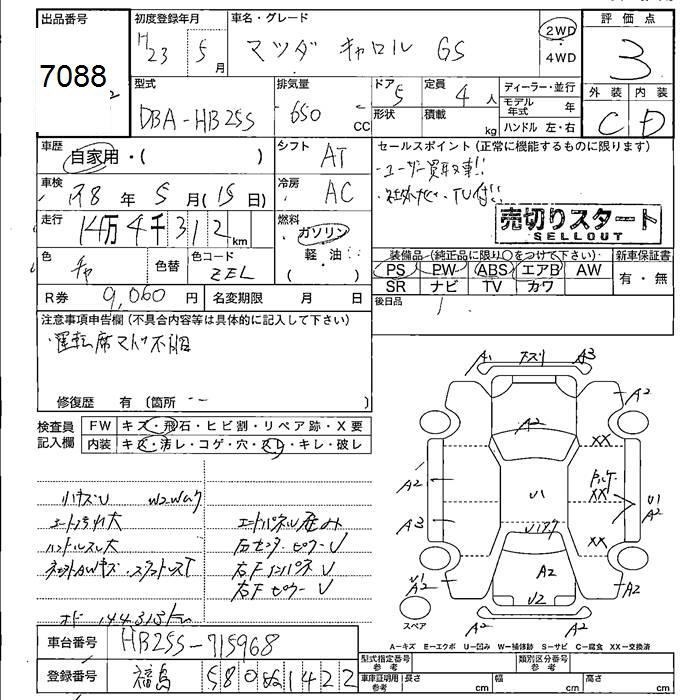 出品番号
7088
2
初度登録年月
H23 5月
車名・グレード
マツダ キャロル GS
2WD・4WD
評価点
3
外装 内装
C D
型式
DBA-HB25S
排気量
650 CC
ドア 5
形状
定員 4 人
積載 kg
ディーラー・並行
モデル年式 年
ハンドル 左・右
車歴
自家用・( )
シフト
AT
セールスポイント(正常に機能するものに限ります)
・ユーザー買取車!!
・社外ナビ・TV付!!
売切りスタート
SELLOUT
車検
H28年 5月(15日)
冷房
AC
走行
14万4千312km
燃料
ガソリン
・
軽・油
( )
色
茶
色替
色コード
ZEL
装備品(純正品に限り○をつけて下さい)
PS PW ABS エアB AW
SR ナビ TV カワ
新車保証書
有・無
R券 9,060円
名変期限 月 日
後日品
注意事項申告欄(不具合内容等は具体的に記入して下さい)
・運転席マド不調
修復歴 有(箇所 --
検査員記入欄
FW キズ・飛石・ヒビ割・リペア跡・X要
内装 キズ・汚レ・コゲ・穴・スレ・キレ・破レ
シート汚れ大
ハンドルスレ大
右センターピラーU
右Fインパネ U
右F ピラーU
オド 144,313km
A1 A3
A2 A2
XX
A2
U1
XX
U1
A2
A3
XX
U1
A2
A2
A2
U2
A1 A2
スペア
A-キズ E-エクボ U-凹み W-補修跡 S-サビ C-腐食 XX-交換済
車台番号
HB25S-715968
登録番号
福島 580 ぬ 1422
型式指定番号
参考
類別区分番号
参考
車庫証明用
参考
長さ cm
幅 cm
高さ cm